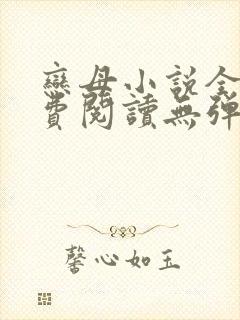 戀母小說全
費閱讀無彈
馨心如玉